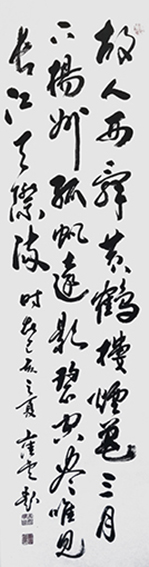 故人西辞黄鹤楼烟花三月
下揚州孤帆遠影碧空尽唯見
长江天際流 时在己亥之夏